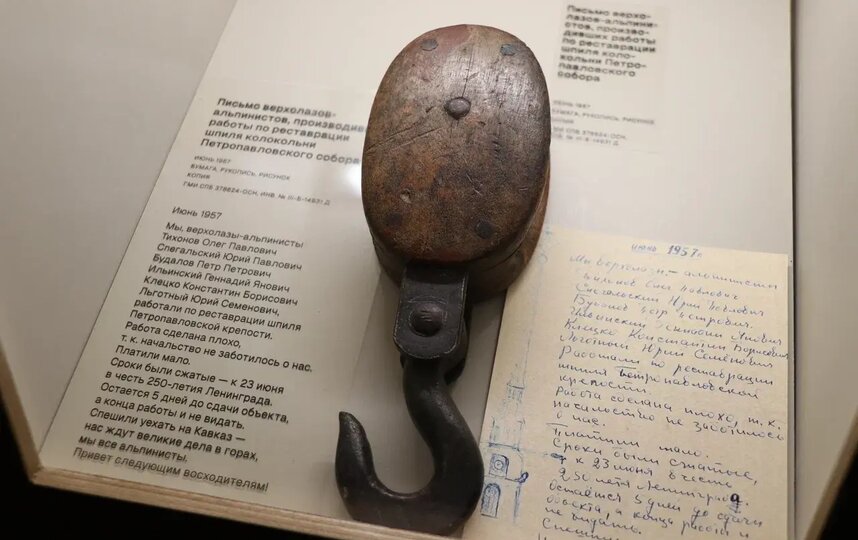 Письмо верхолазов-
альпинистов, производив
работы по реставрации
шпиля колокольни
Петропавловского собора
ИЮНЬ 1957
БУМАГА, РУКОПИСЬ, РИСУНОК
КОПИЯ
ГМИ СПБ 378624-ОСН, ИНВ. № III-Б-14931 Д
Июнь 1957
Мы, верхолазы-альпинисты
Тихонов Олег Павлович
Спегальский Юрий Павлович
Будалов Петр Петрович
Ильинский Геннадий Янович
Клецко Константин Борисович
Льготный Юрий Семенович,
работали по реставрации шпиля
Петропавловской крепости.
Работа сделана плохо,
т. к. начальство не заботилось о нас.
Платили мало.
Сроки были сжатые – к 23 июня
в честь 250-летия Ленинграда.
Остается 5 дней до сдачи объекта,
а конца работы и не видать.
Спешили уехать на Кавказ –
нас ждут великие дела в горах,
мы все альпинисты.
Привет следующим восходителям!
Письмо верхо-
лазов-альпини-
стов, произво-
дивших работы
по реставрации
шпиля коло-
кольни Петро-
павловского
собора
ИЮНЬ 1957
БУМАГА, РУКОПИСЬ, РИСУНОК
СПБ 378624-ОСН,
III-Б-14931 Д
июнь 1957г
Мы верхолазы-альпинисты
Олег Павлович
Спегальский Юрий Павлович
Петр Петрович
Геннадий Янович
Клецко Константин Борисович
Льготный Юрий Семенович
Работали по реставрации
шпиля Петропавловской
крепости.
Работа сделана плохо, т. к.
начальство не заботилось
о нас.
Платили мало.
Сроки были сжатые,
к 23 июня в честь
250 летия Ленинграда.
Остается 5 дней до сдачи
объекта, а конца работы и
не видать.